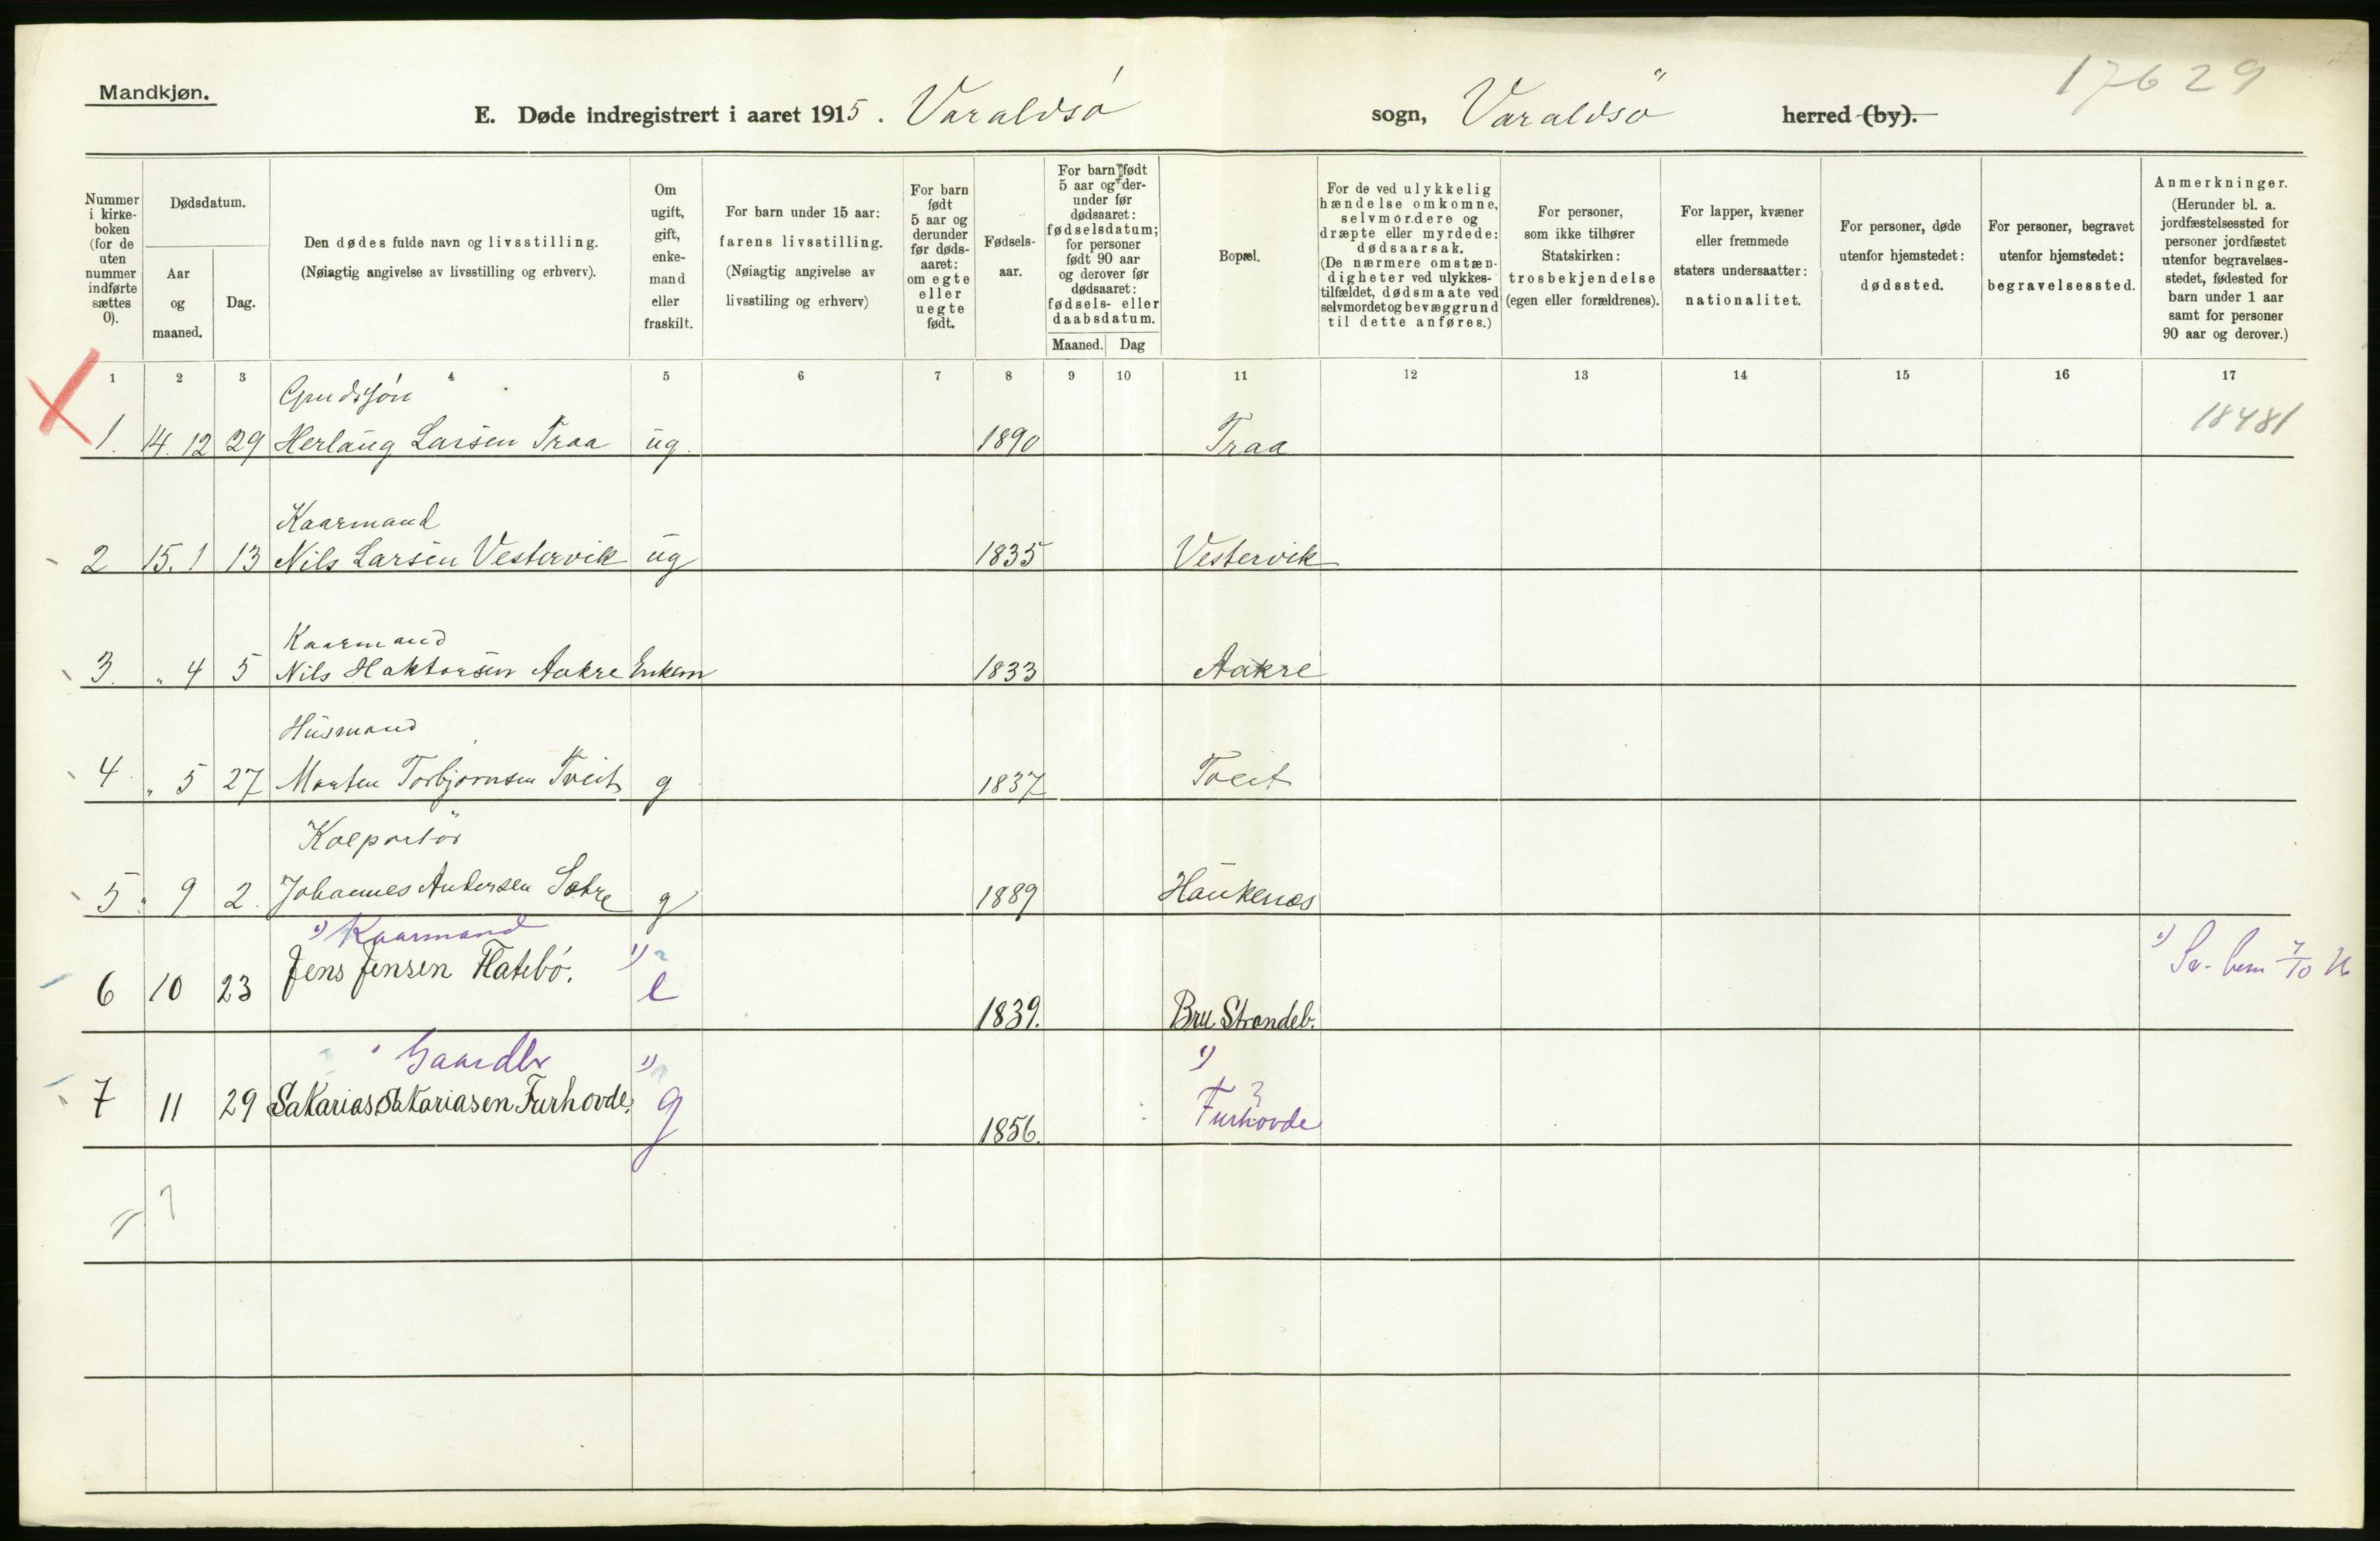 17629
Mandkjøn.
E. Døde indregistrert i aaret 1915. Varaldsó sogn, Varaldsö herred (by).
Nummer i kirke-boken (for de uten nummer indførte sættes 0).
Dødsdatum.
Aar og maaned.
Dag.
Den dødes fulde navn og livsstilling.
(Nøiagtig angivelse av livsstilling og erhverv).
Om ugift, gift, enke-mand eller fraskilt.
For barn under 15 aar:
farens livsstilling.
(Nøiagtig angivelse av
livsstiling og erhverv)
For barn født 5 aar og derunder før døds-aaret: om egte eller uegte født.
Fødsels-aar.
For barn født 5 aar og der-under før dødsaaret: fødselsdatum; for personer født 90 aar og derover før dødsaaret: fødsels- eller daabsdatum.
Maaned. Dag
Bopæl.
For de ved ulykkelig hændelse omkomne, selvmordere og dræpte eller myrdede: dødsaarsak. (De nærmere omstæn-digheter ved ulykkes-tilfældet, dødsmaate ved selvmordet og bevæggrund til dette anføres.)
For personer, som ikke tilhører Statskirken: trosbekjendelse (egen eller forældrenes).
For lapper, kvæner eller fremmede staters undersaatter: nationalitet.
For personer, døde utenfor hjemstedet: dødssted.
For personer, begravet utenfor hjemstedet: begravelsessted.
Anmerkninger. (Herunder bl. a. jordfæstelsessted for personer jordfæstet utenfor begravelses-stedet, fødested for barn under 1 aar samt for personer 90 aar og derover.)
1 2 3 4 5 6 7 8 9 10 11 12 13 14 15 16 17
18481
1. 14. 12 29 Herlaug Larsen Traa ug. 1890 Traa
Kaarmand
2 15. 1 13 Nils Larsen Vestervik ug 1835 Vestervik
Kaarmand
3. " 4 5 Nils Haktorsen Aakre Enkem 1833 Aakre
Husmand
4 " 5 27 Morten Torbjornsen Tveit g 1837 Tveit
Kolportör
5 " 9 2. Johannes Andersen Sætre g 1889 Haukenæs
¹) Kaarmand
6 10 23 Jens Jensen Flatebó. ¹) e 1839. Bru Strandeb.
Gaardbr ¹) ¹)
7 11 29 Sakarias Sakariasen Furhovde. g 1856. Furhovde